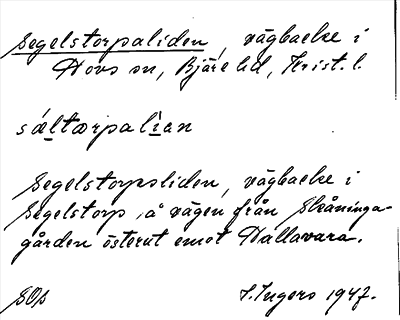 Segelstorpaliden, vägbacke i
Hovs sn, Bjäre hd, Krist. l.
sæ̀ltɑrpalìan
Segelstorpsliden, vägbacke i
Segelstorp, å vägen från Skåninga-
gården österut emot Hallavara.
SOs J. Ingers 1947.